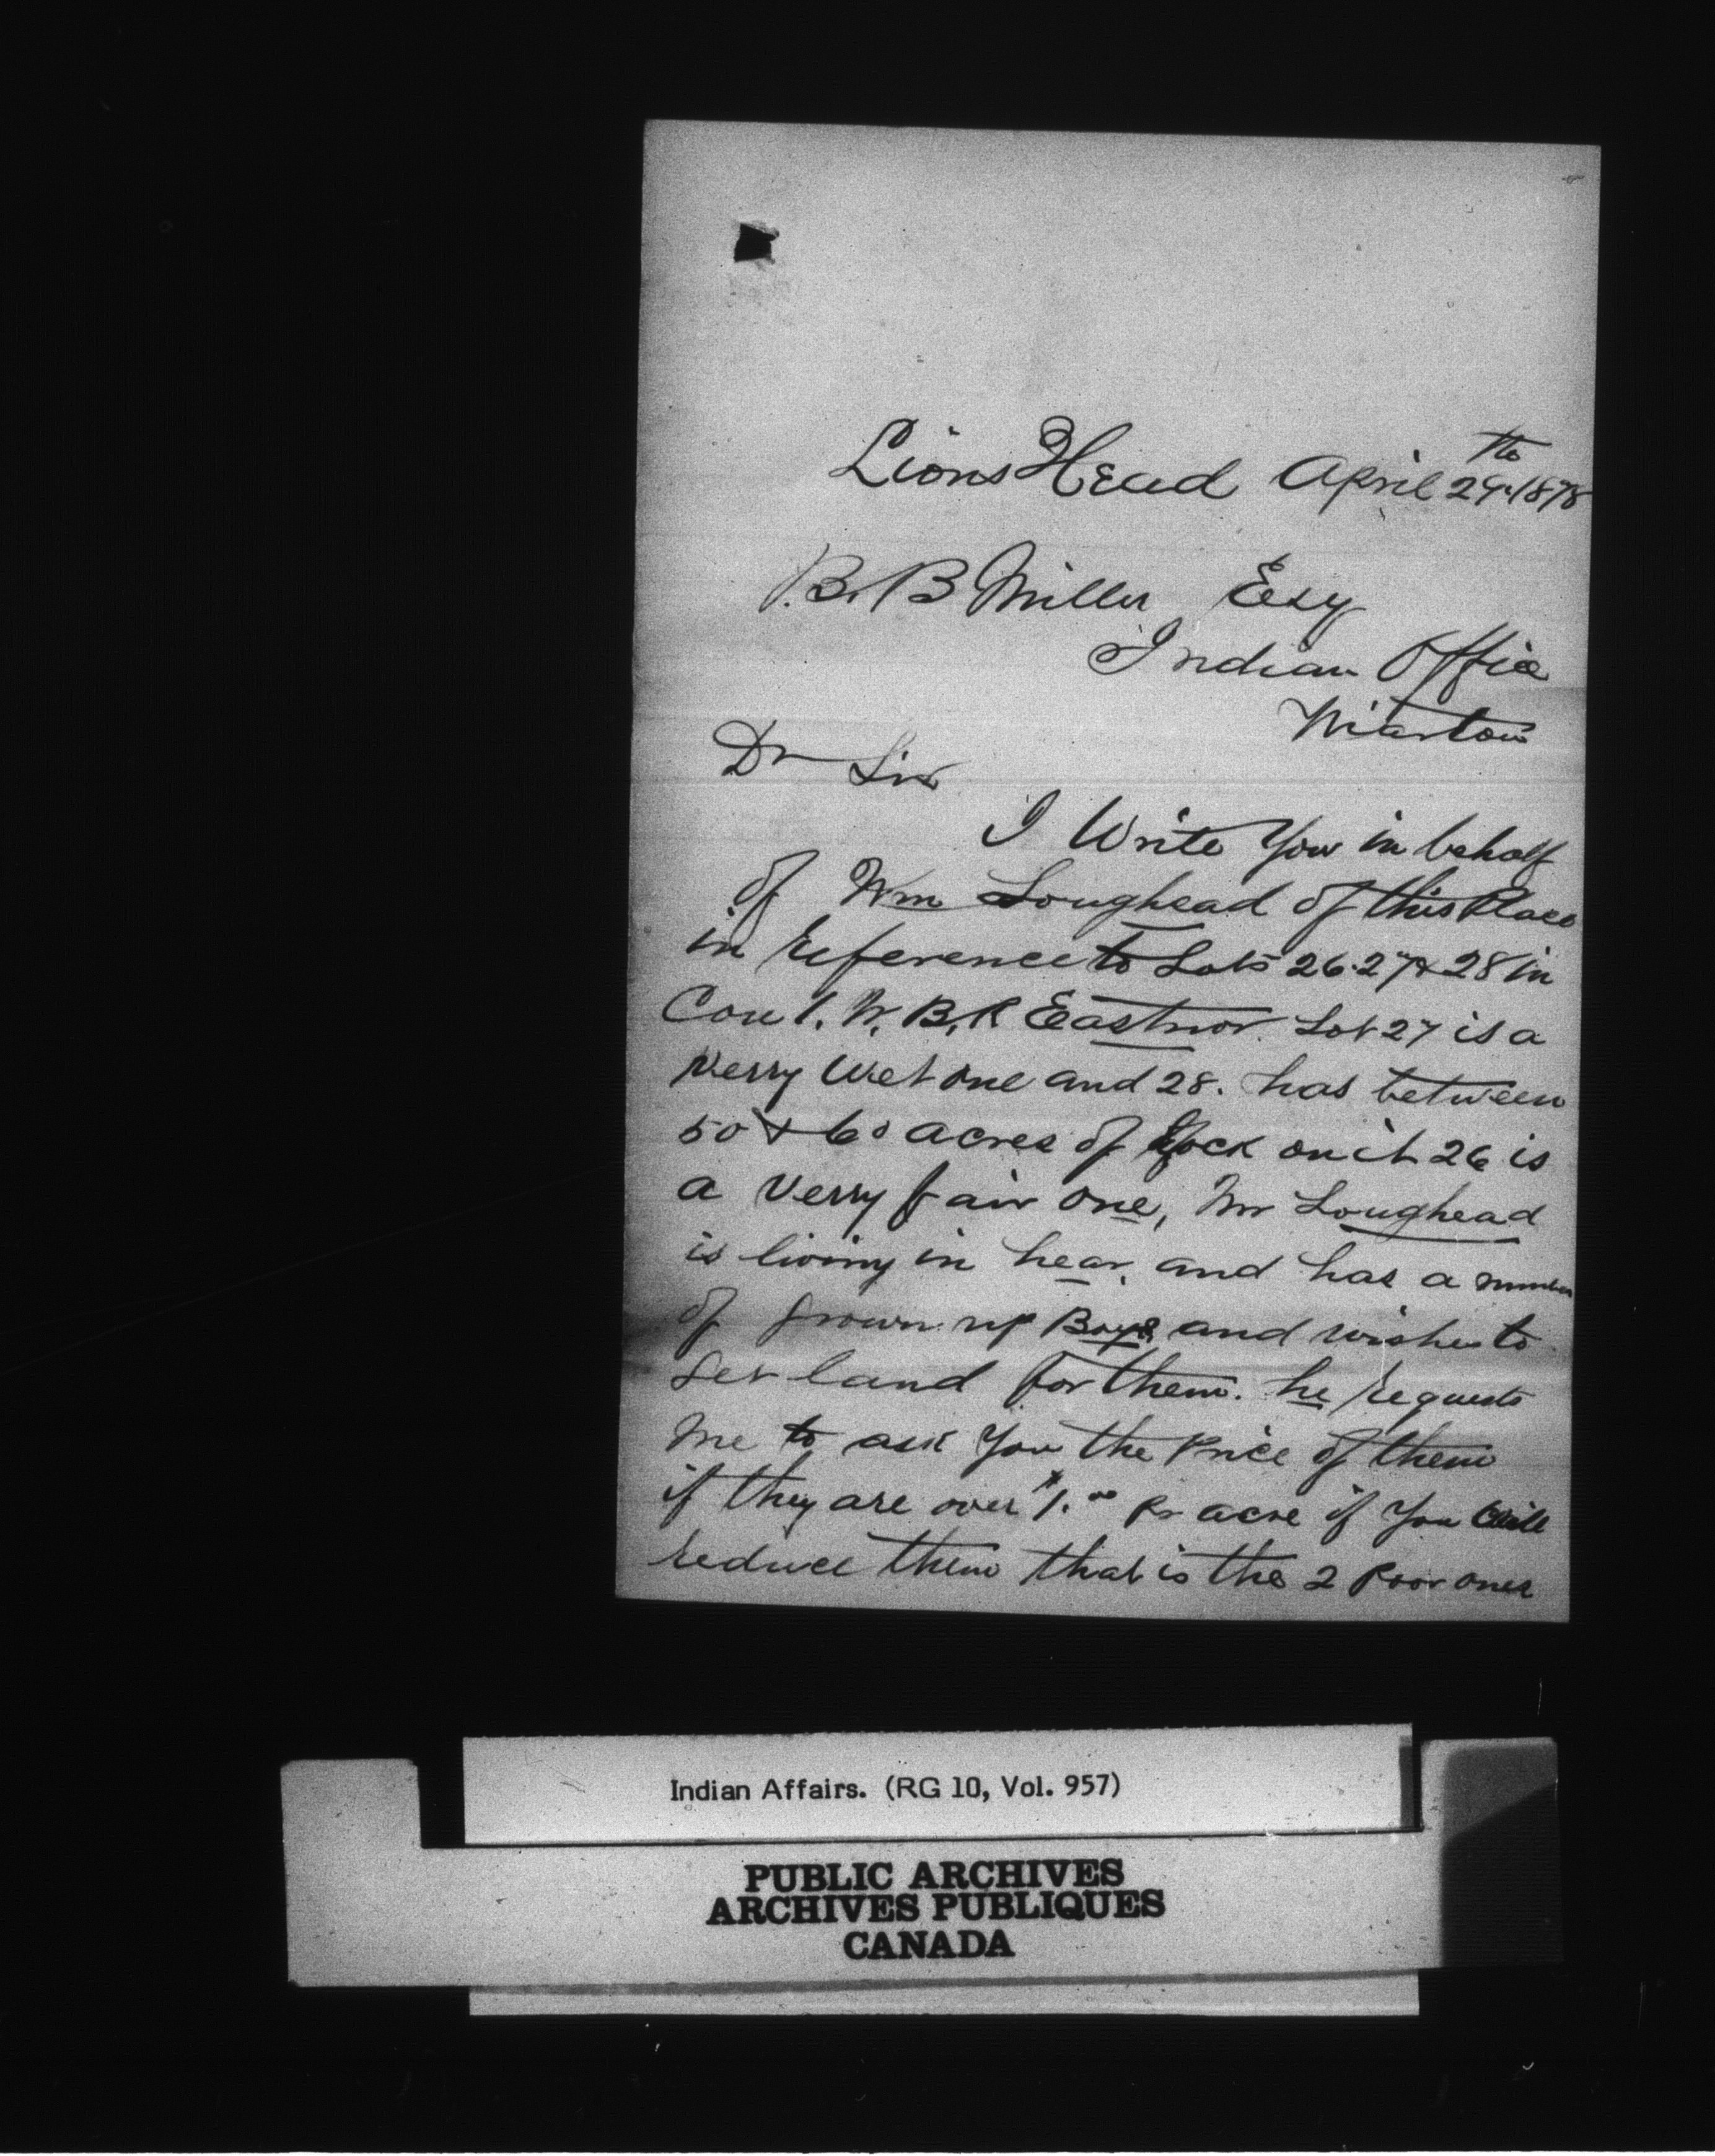 Lions Head April 29th 1878
B. B Miller Esq
Indian Office
Wiarton
Dr Sir
I Write You in behalf
of Wm Loughead of this Place
in reference to Lots 26.27 & 28 in
Con 1. W. B. R Eastnor. Lot 27 is a
verry wet one and 28. has between
50 & 60 acres of Rock on it 26 is
a verry fair one, Mr Loughead
is living in hear, and has a number
of grown up Boys, and wishes to
Get land for them. he requests
me to ask You the Price of them
if they are over $1.00 Pr acre if You Will
reduce them that is the 2 Poor ones
Indian Affairs. (RG 10, Vol. 957)
PUBLIC ARCHIVES
ARCHIVES PUBLIQUES
CANADA